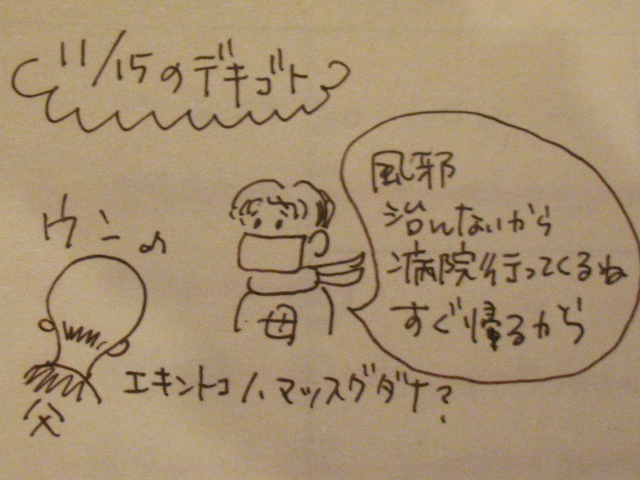 11/15のデキゴト
風邪
治んないから
病院行ってくるね
すぐ帰るから
ウン♪
母
エキントコハマッスグダナ?
父